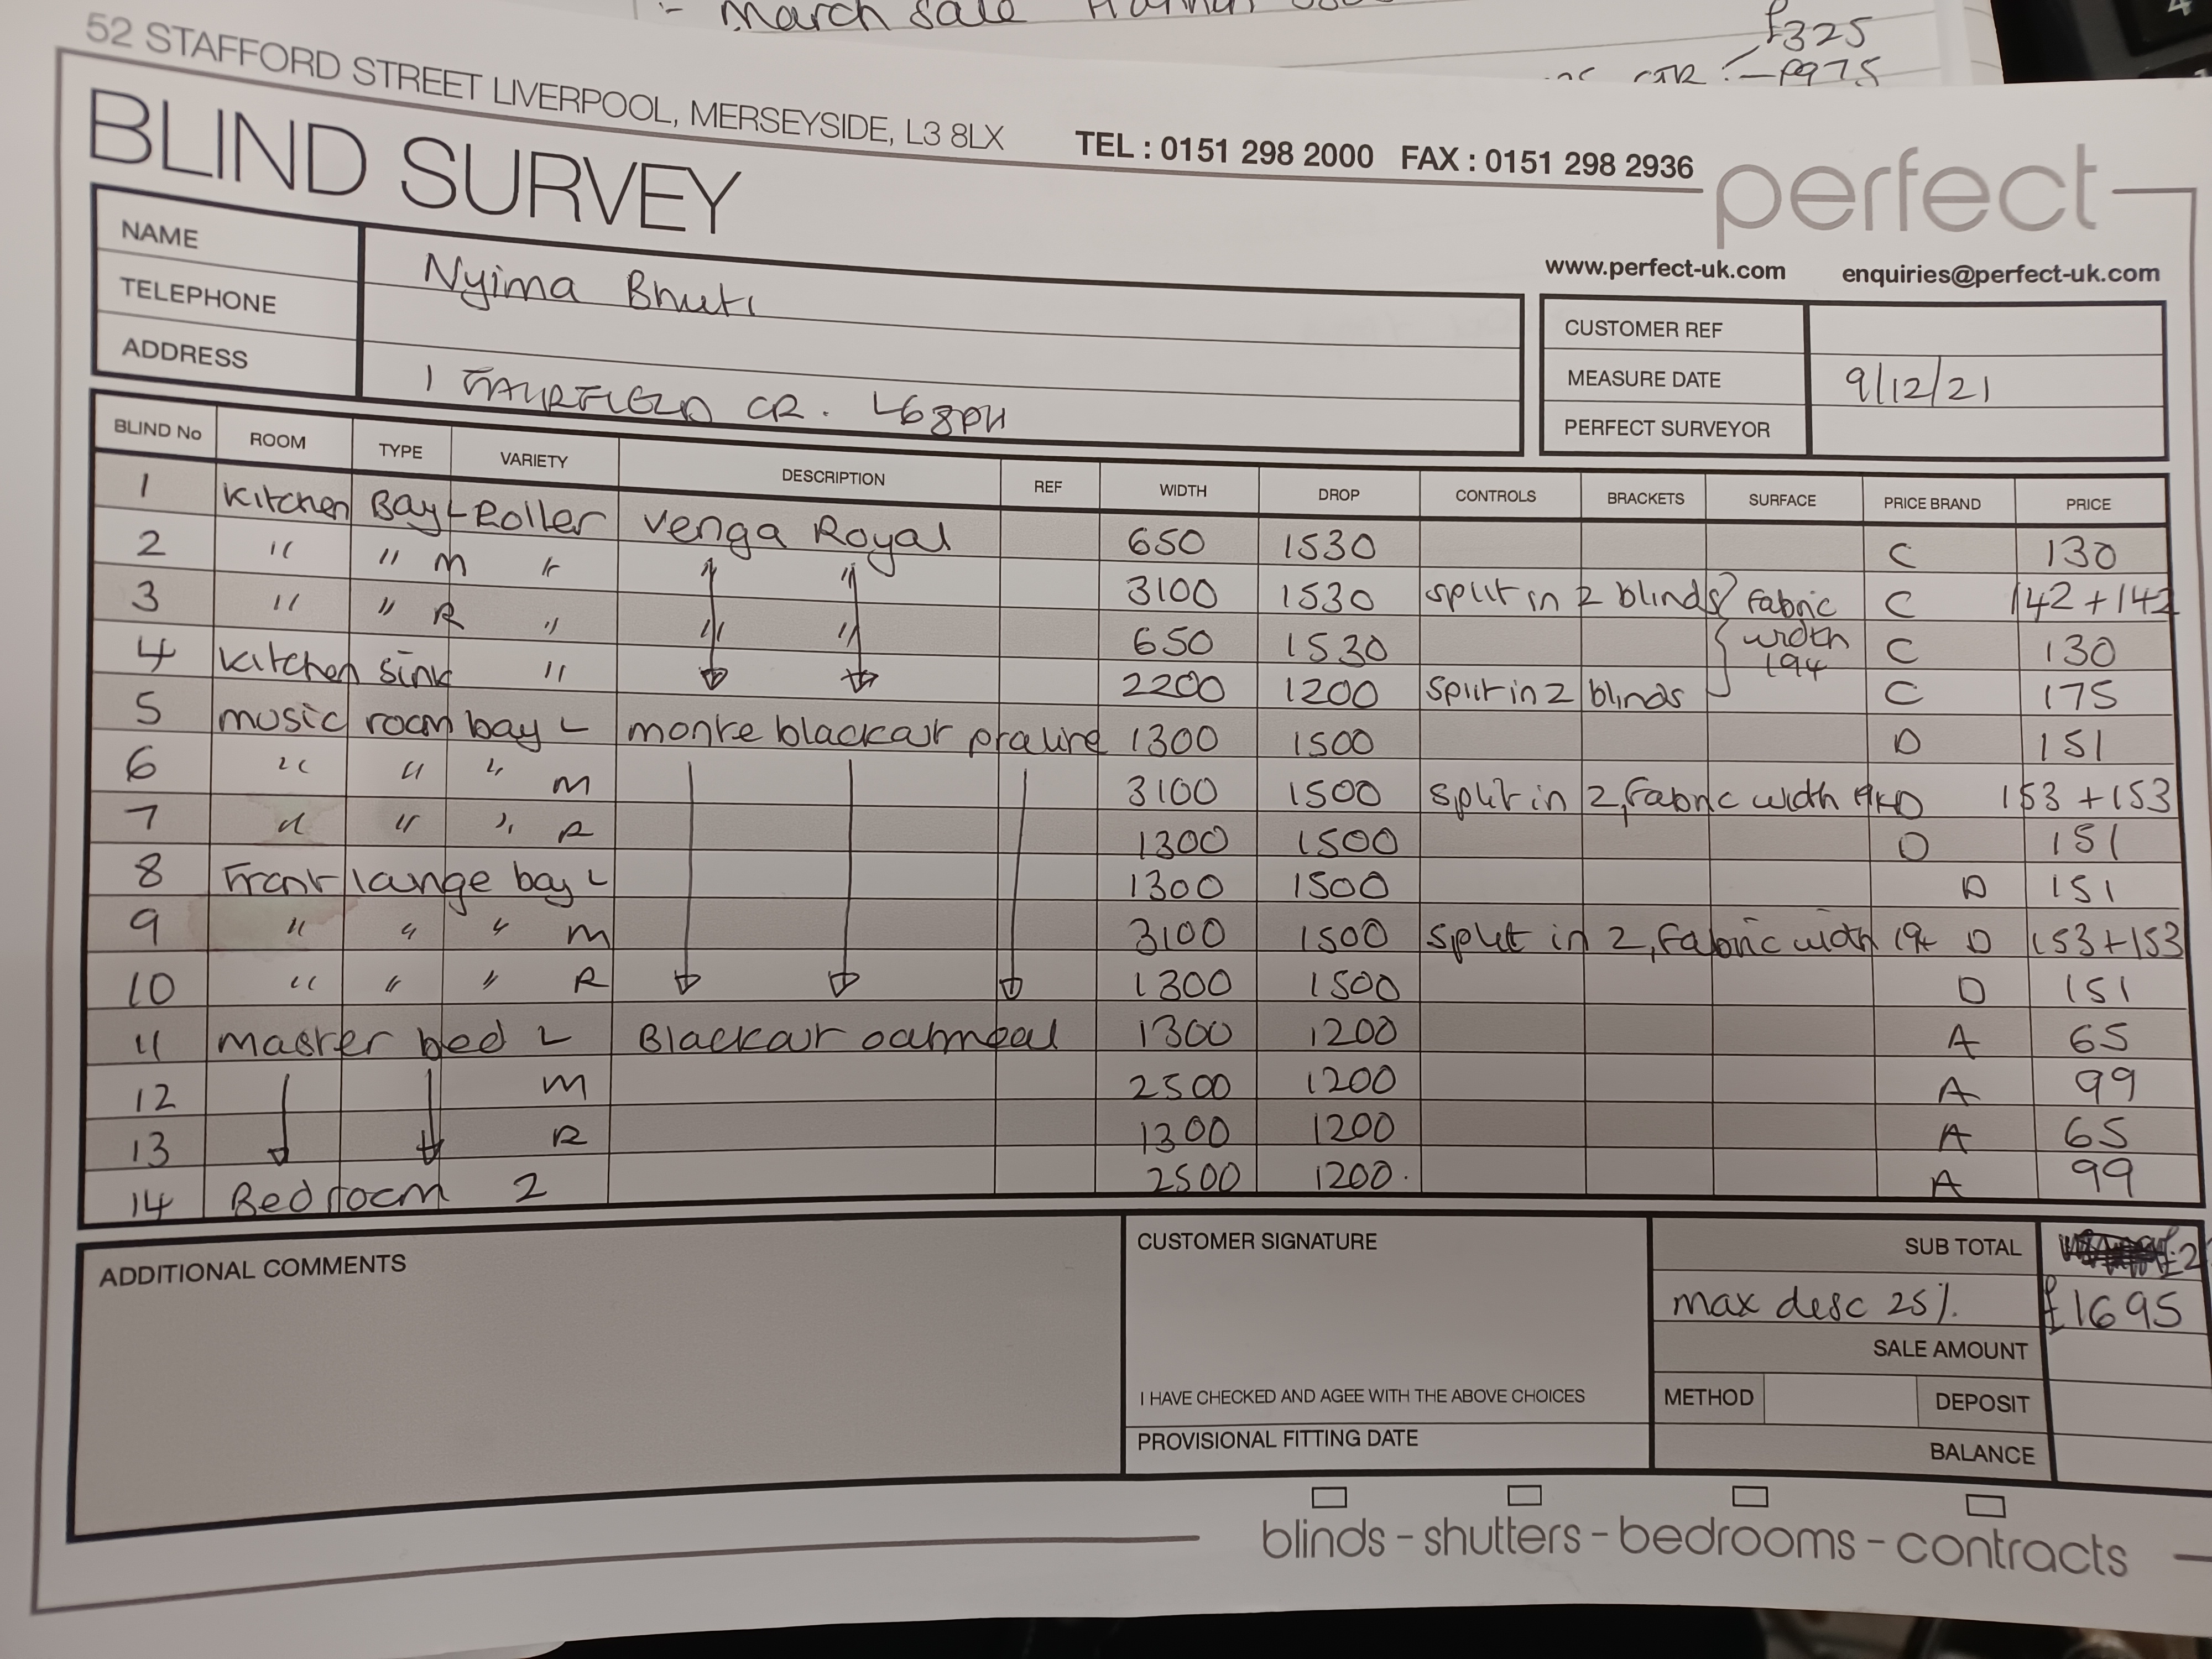 :- March sale
£325
52 STAFFORD STREET LIVERPOOL, MERSEYSIDE, L3 8LX TEL : 0151 298 2000 FAX : 0151 298 2936
BLIND SURVEY perfect
www.perfect-uk.com enquiries@perfect-uk.com
NAME Nyima Bhuti
TELEPHONE
ADDRESS 1 FAIRFIELD CR. L68PH
CUSTOMER REF
MEASURE DATE 9/12/21
PERFECT SURVEYOR
BLIND No ROOM TYPE VARIETY DESCRIPTION REF WIDTH DROP CONTROLS BRACKETS SURFACE PRICE BRAND PRICE
1 Kitchen Bay L Roller Venga Royal 650 1530 C 130
2 " " M " " " 3100 1530 split in 2 blinds fabric C 142 + 142
3 " " R " " " 650 1530 width C 130
4 Kitchen sink " 2200 1200 split in 2 blinds 194 C 175
5 music room bay L monte blackout praline 1300 1500 D 151
6 " " " M 3100 1500 split in 2, fabric width D 153 + 153
7 " " " R 1300 1500 D 151
8 Front lounge bay L 1300 1500 D 151
9 " " " M 3100 1500 split in 2, fabric width 194 D 153 + 153
10 " " " R 1300 1500 D 151
11 master bed L Blackout oatmeal 1300 1200 A 65
12 M 2500 1200 A 99
13 R 1300 1200 A 65
14 Bedroom 2 2500 1200 A 99
ADDITIONAL COMMENTS
CUSTOMER SIGNATURE
I HAVE CHECKED AND AGEE WITH THE ABOVE CHOICES
PROVISIONAL FITTING DATE
SUB TOTAL £2
max desc 25% £1695
SALE AMOUNT
METHOD DEPOSIT
BALANCE
blinds - shutters - bedrooms - contracts